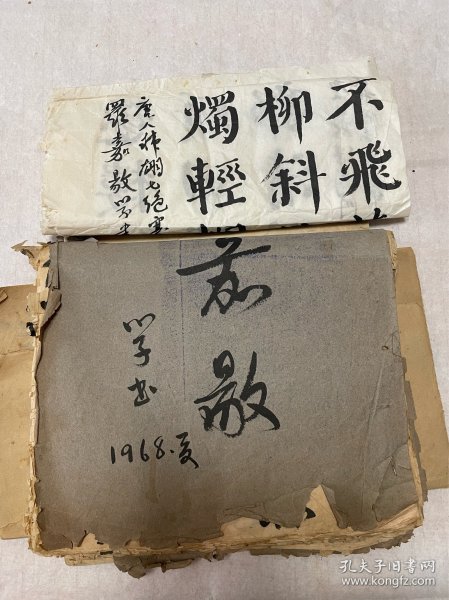 不飛
柳斜
燭輕
唐人韩翃七绝寒
羅嘉敭學
嘉敭
學书
1968.夏
孔夫子旧书网
www.kongfz.com